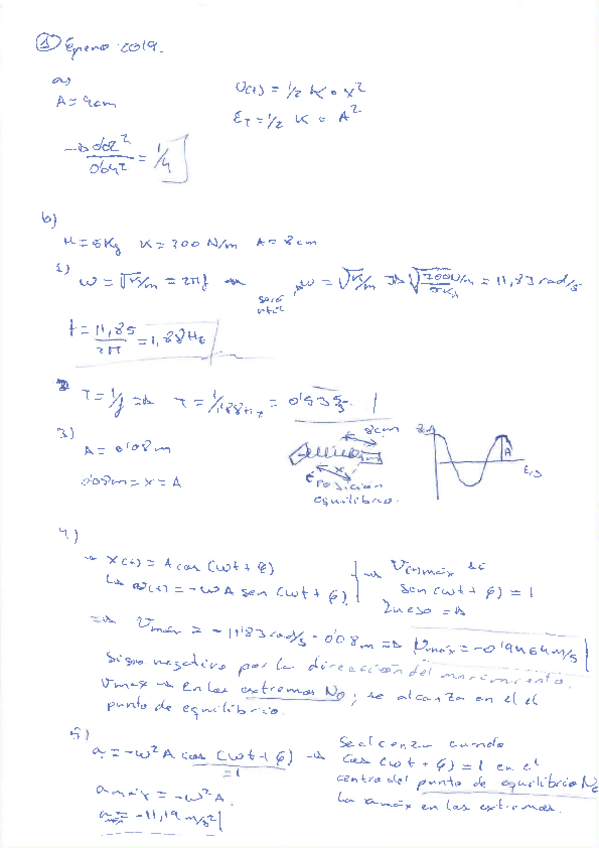 ① Enero 2019.
a)
A = 4cm
U(t) = 1/2 K · x²
E_T = 1/2 K · A²
→ 0'02² / 0'04² = 1/4
b)
M = 5Kg K = 700 N/m A = 8cm
1) ω = √K/m = 2πf
ω = √K/m ⇒ √700N/m / 5Kg = 11,83 rad/s
f = 11,85 / 2π = 1,88 Hz
2 T = 1/f ⇒ T = 1/1,88Hz = 0'535 s
3)
A = 0'08m
0'08m = x = A
8cm
x
Posición
equilibrio.
A
t,s
4.)
→ x(t) = A cos (ωt + φ)
↳ v(t) = -ωA sen (ωt + φ)
→ V(t)máx si
sen (ωt + φ) = 1
⇒ Vmáx = -11'83rad/s · 0'08m ⇒ Vmáx = -0'9464m/s
Signo negativo por la dirección del movimiento.
Vmax → En los extremos No; se alcanza en el
punto de equilibrio.
5)
a = -ω²A cos (ωt + φ) →
=1
Se alcanza cuando
cos (ωt + φ) = 1 en el
centro del punto de equilibrio No
La amáx en los extremos.
amáx = -ω²A.
amáx = -11,19 m/s²